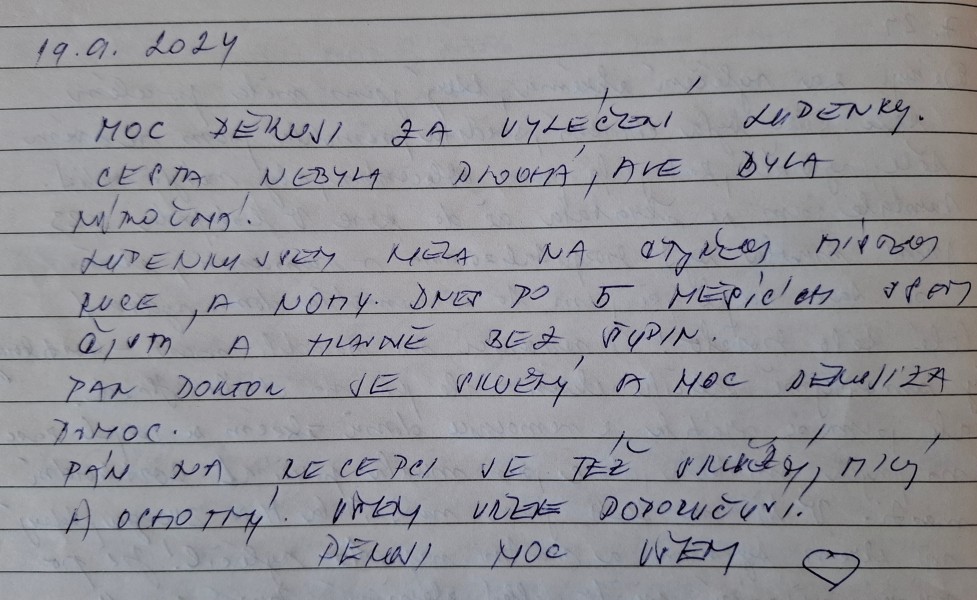 19.9. 2024
MOC DĚKUJI ZA VYLÉČENÍ LUPENKY.
CESTA NEBYLA DLOUHÁ, ALE BYLA
NÁROČNÁ.
LUPENKU JSEM MĚLA NA
RUCE, A NOHY. DNES PO 5 MĚSÍCÍCH JSEM
ČISTÁ A HLAVNĚ BEZ ŠUPIN.
PAN DOKTOR JE SKVĚLÝ A MOC DĚKUJI ZA
POMOC.
PÁN NA RECEPCI JE TÉŽ SKVĚLÝ, MILÝ
A OCHOTNÝ. VŠEM VŘELE DOPORUČUJI.
DĚKUJI MOC VŠEM